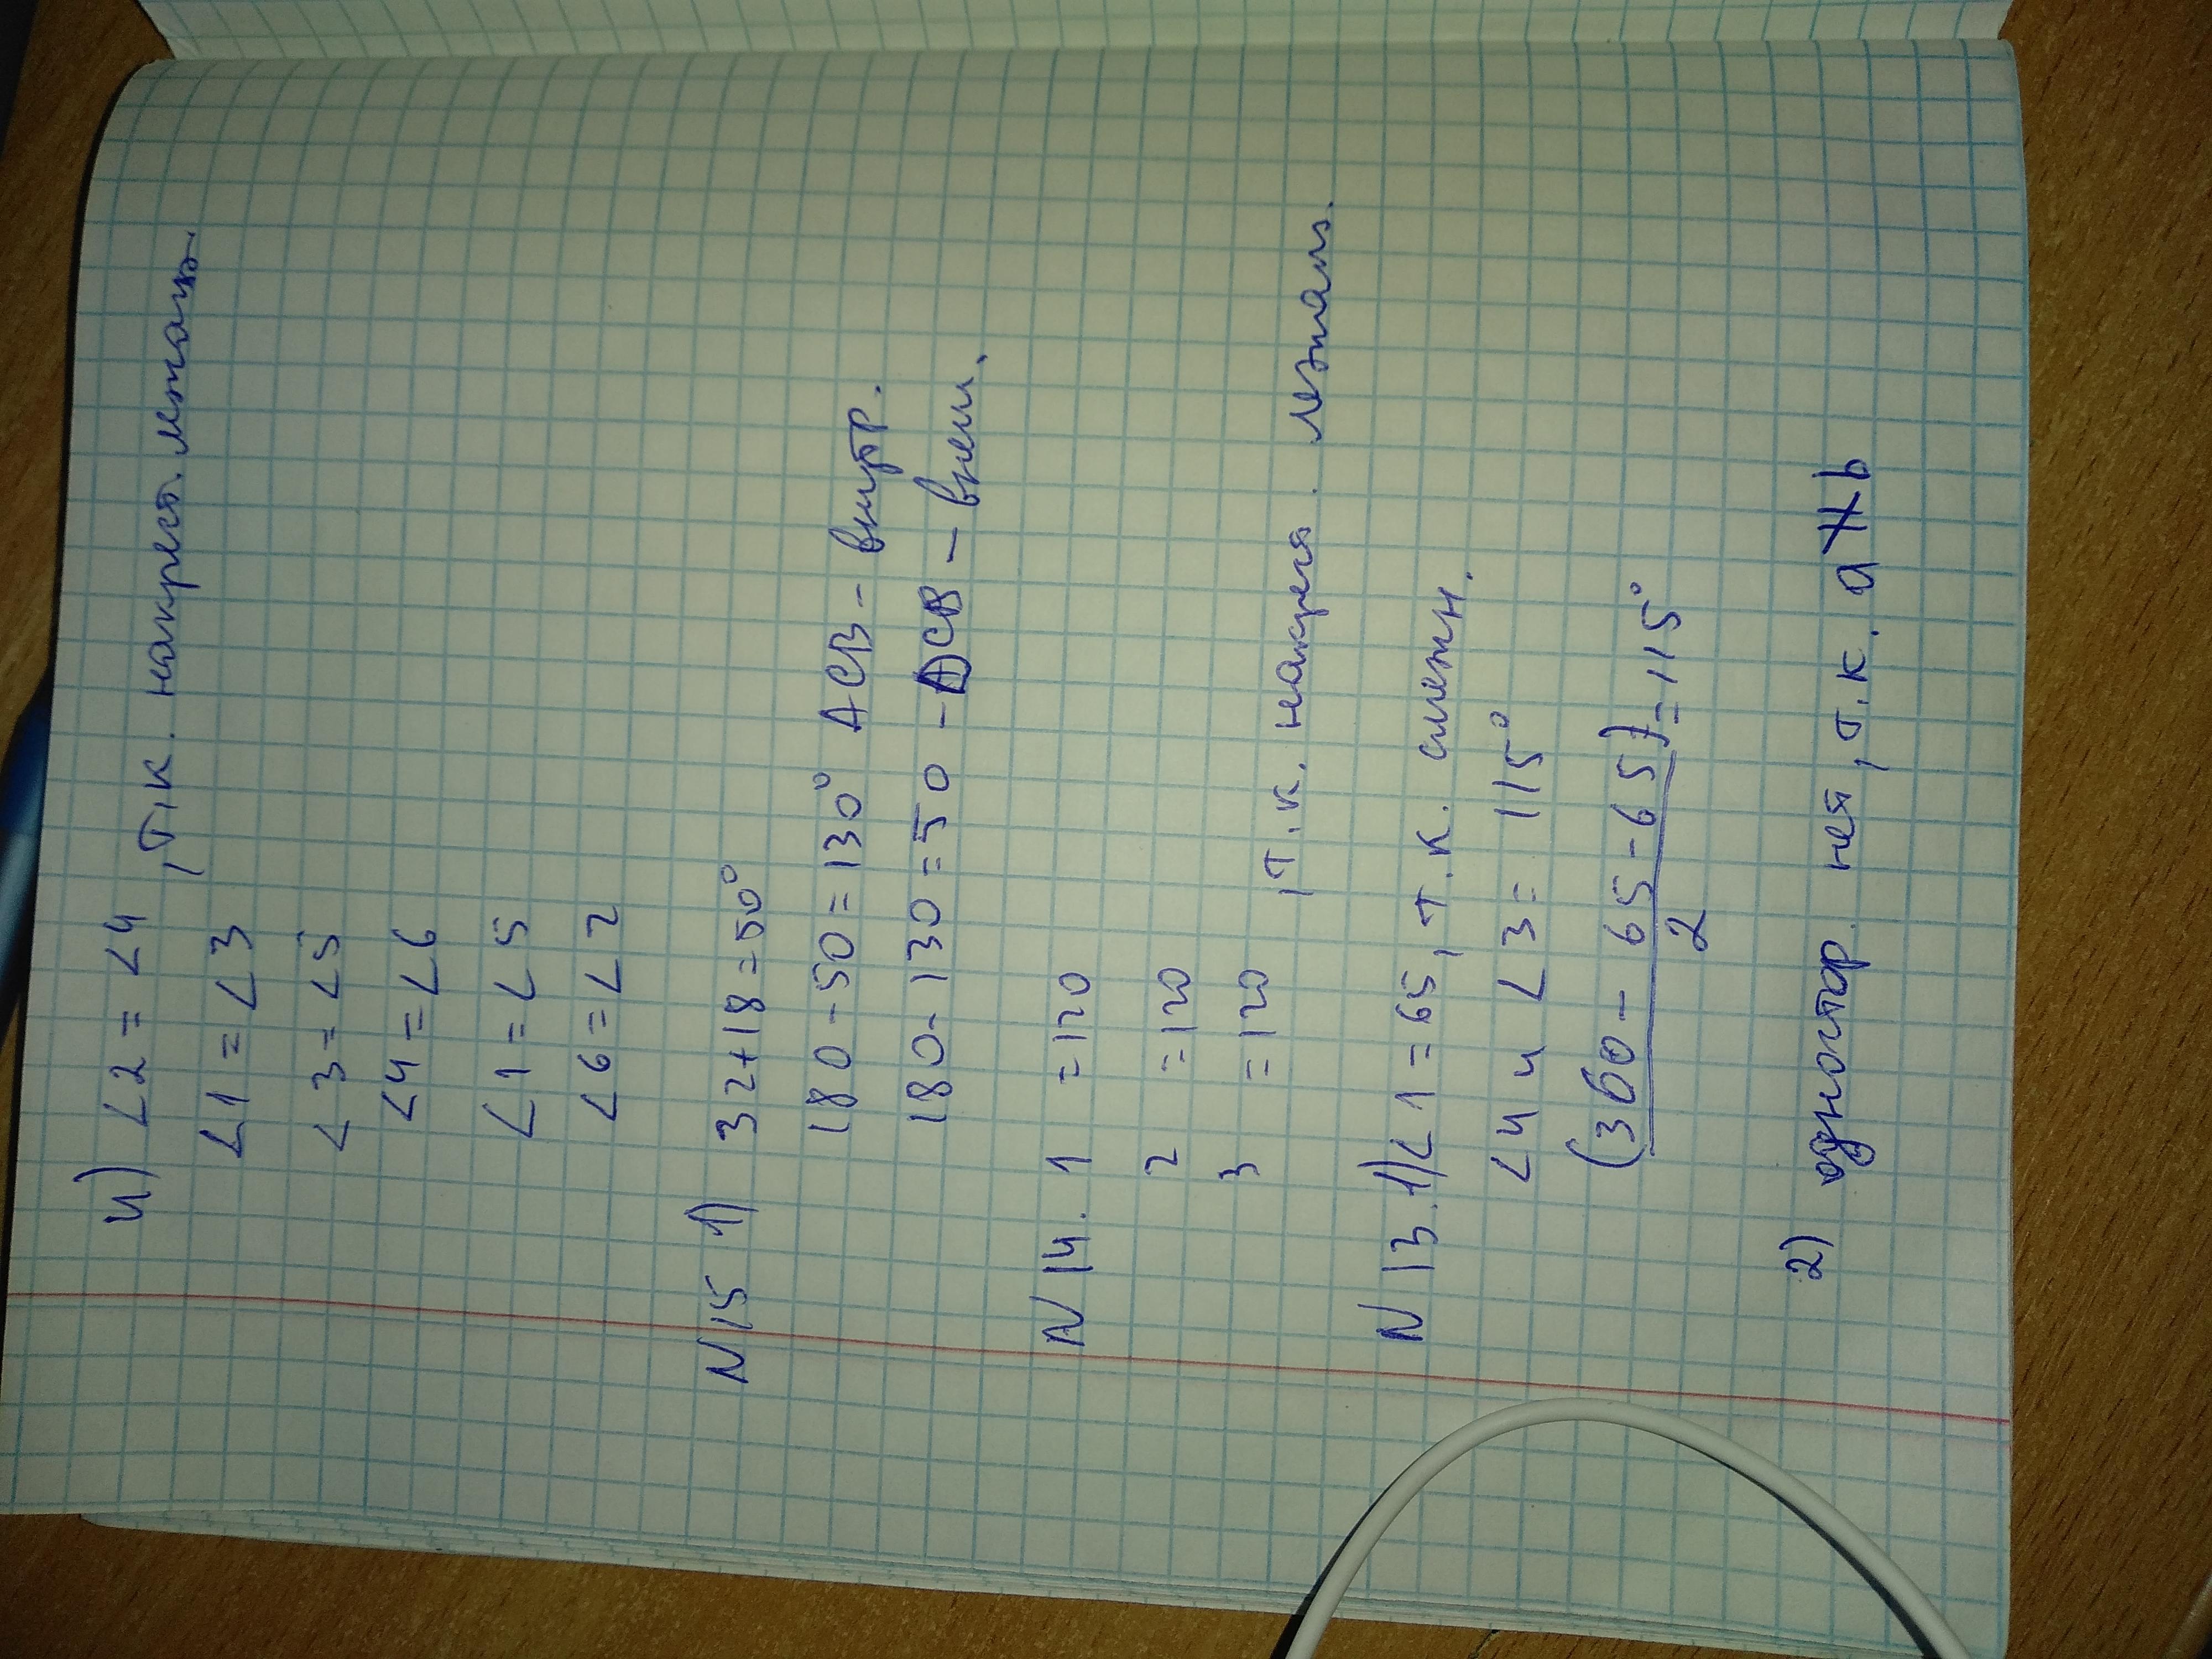 4) ∠2 = ∠4
∠1 = ∠3 , т.к. накрест. лежащ.
∠3 = ∠5
∠4 = ∠6
∠1 = ∠5
∠6 = ∠2
N 15 1) 32+18=50°
180-50=130° ACB - внутр.
180-130=50 - ACB - внеш.
N 14. 1 =120
2 =120
3 =120 , т.к. накрест. лежащ.
N 13. 1) ∠1=65, т.к. смежн.
∠4 и ∠3 = 115°
(360-65-65)=115°
2
2) одностор. нет, т.к. a∦b